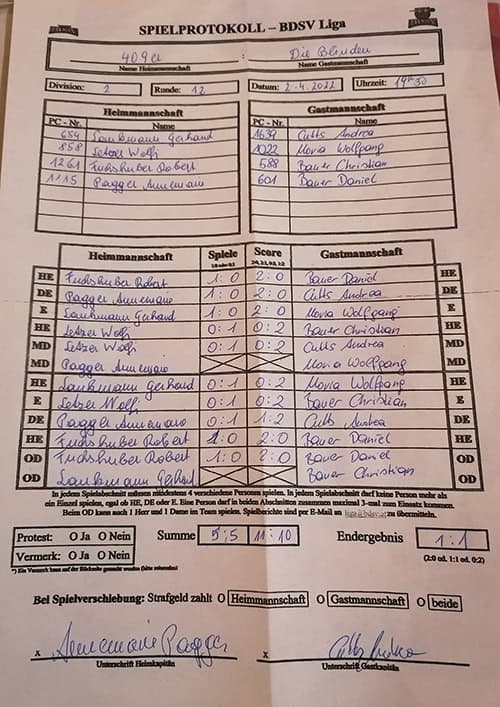 SPIELPROTOKOLL – BDSV Liga
409er : Die Blinden
Name Heimmannschaft Name Gastmannschaft
Division: 2 Runde: 12 Datum: 2.4.2022 Uhrzeit: 19:30
Heimmannschaft Gastmannschaft
PC - Nr. Name PC - Nr. Name
654 Laukmann Gerhard 1639 Cutts Andrea
858 Letzer Wolfi 1022 Moria Wolfgang
1261 Fuchshuber Robert 588 Bauer Christian
1115 Pagger Annemarie 601 Bauer Daniel
Heimmannschaft Spiele Score Gastmannschaft
HE Fuchshuber Robert 1:0 2:0 Bauer Daniel HE
DE Pagger Annemarie 1:0 2:0 Cutts Andrea DE
E Laukmann Gerhard 1:0 2:0 Moria Wolfgang E
HE Letzer Wolfi 0:1 0:2 Bauer Christian HE
MD Letzer Wolfi 0:1 0:2 Cutts Andrea MD
MD Pagger Annemarie Moria Wolfgang MD
HE Laukmann Gerhard 0:1 0:2 Moria Wolfgang HE
E Letzer Wolfi 0:1 0:2 Bauer Christian E
DE Pagger Annemarie 0:1 1:2 Cutts Andrea DE
HE Fuchshuber Robert 1:0 2:0 Bauer Daniel HE
OD Fuchshuber Robert 1:0 2:0 Bauer Daniel OD
OD Laukmann Gerhard Bauer Christian OD
In jedem Spielabschnitt müssen mindestens 4 verschiedene Personen spielen. In jedem Spielabschnitt darf keine Person mehr als
ein Einzel spielen, egal ob HE, DE oder E. Eine Person darf in beiden Abschnitten zusammen maximal 3-mal zum Einsatz kommen.
Beim OD kann auch 1 Herr und 1 Dame im Team spielen. Spielberichte sind per E-Mail an zu übermitteln.
Protest: O Ja O Nein Summe 5:5 11:10 Endergebnis 1:1
Vermerk: O Ja O Nein (2:0 od. 1:1 od. 0:2)
*) Ein Vermerk kann auf der Rückseite gemacht werden (bitte ankreuzen)
Bei Spielverschiebung: Strafgeld zahlt O Heimmannschaft O Gastmannschaft O beide
x Annemarie Pagger x Cutts Andrea
Unterschrift Heimkapitän Unterschrift Gastkapitän